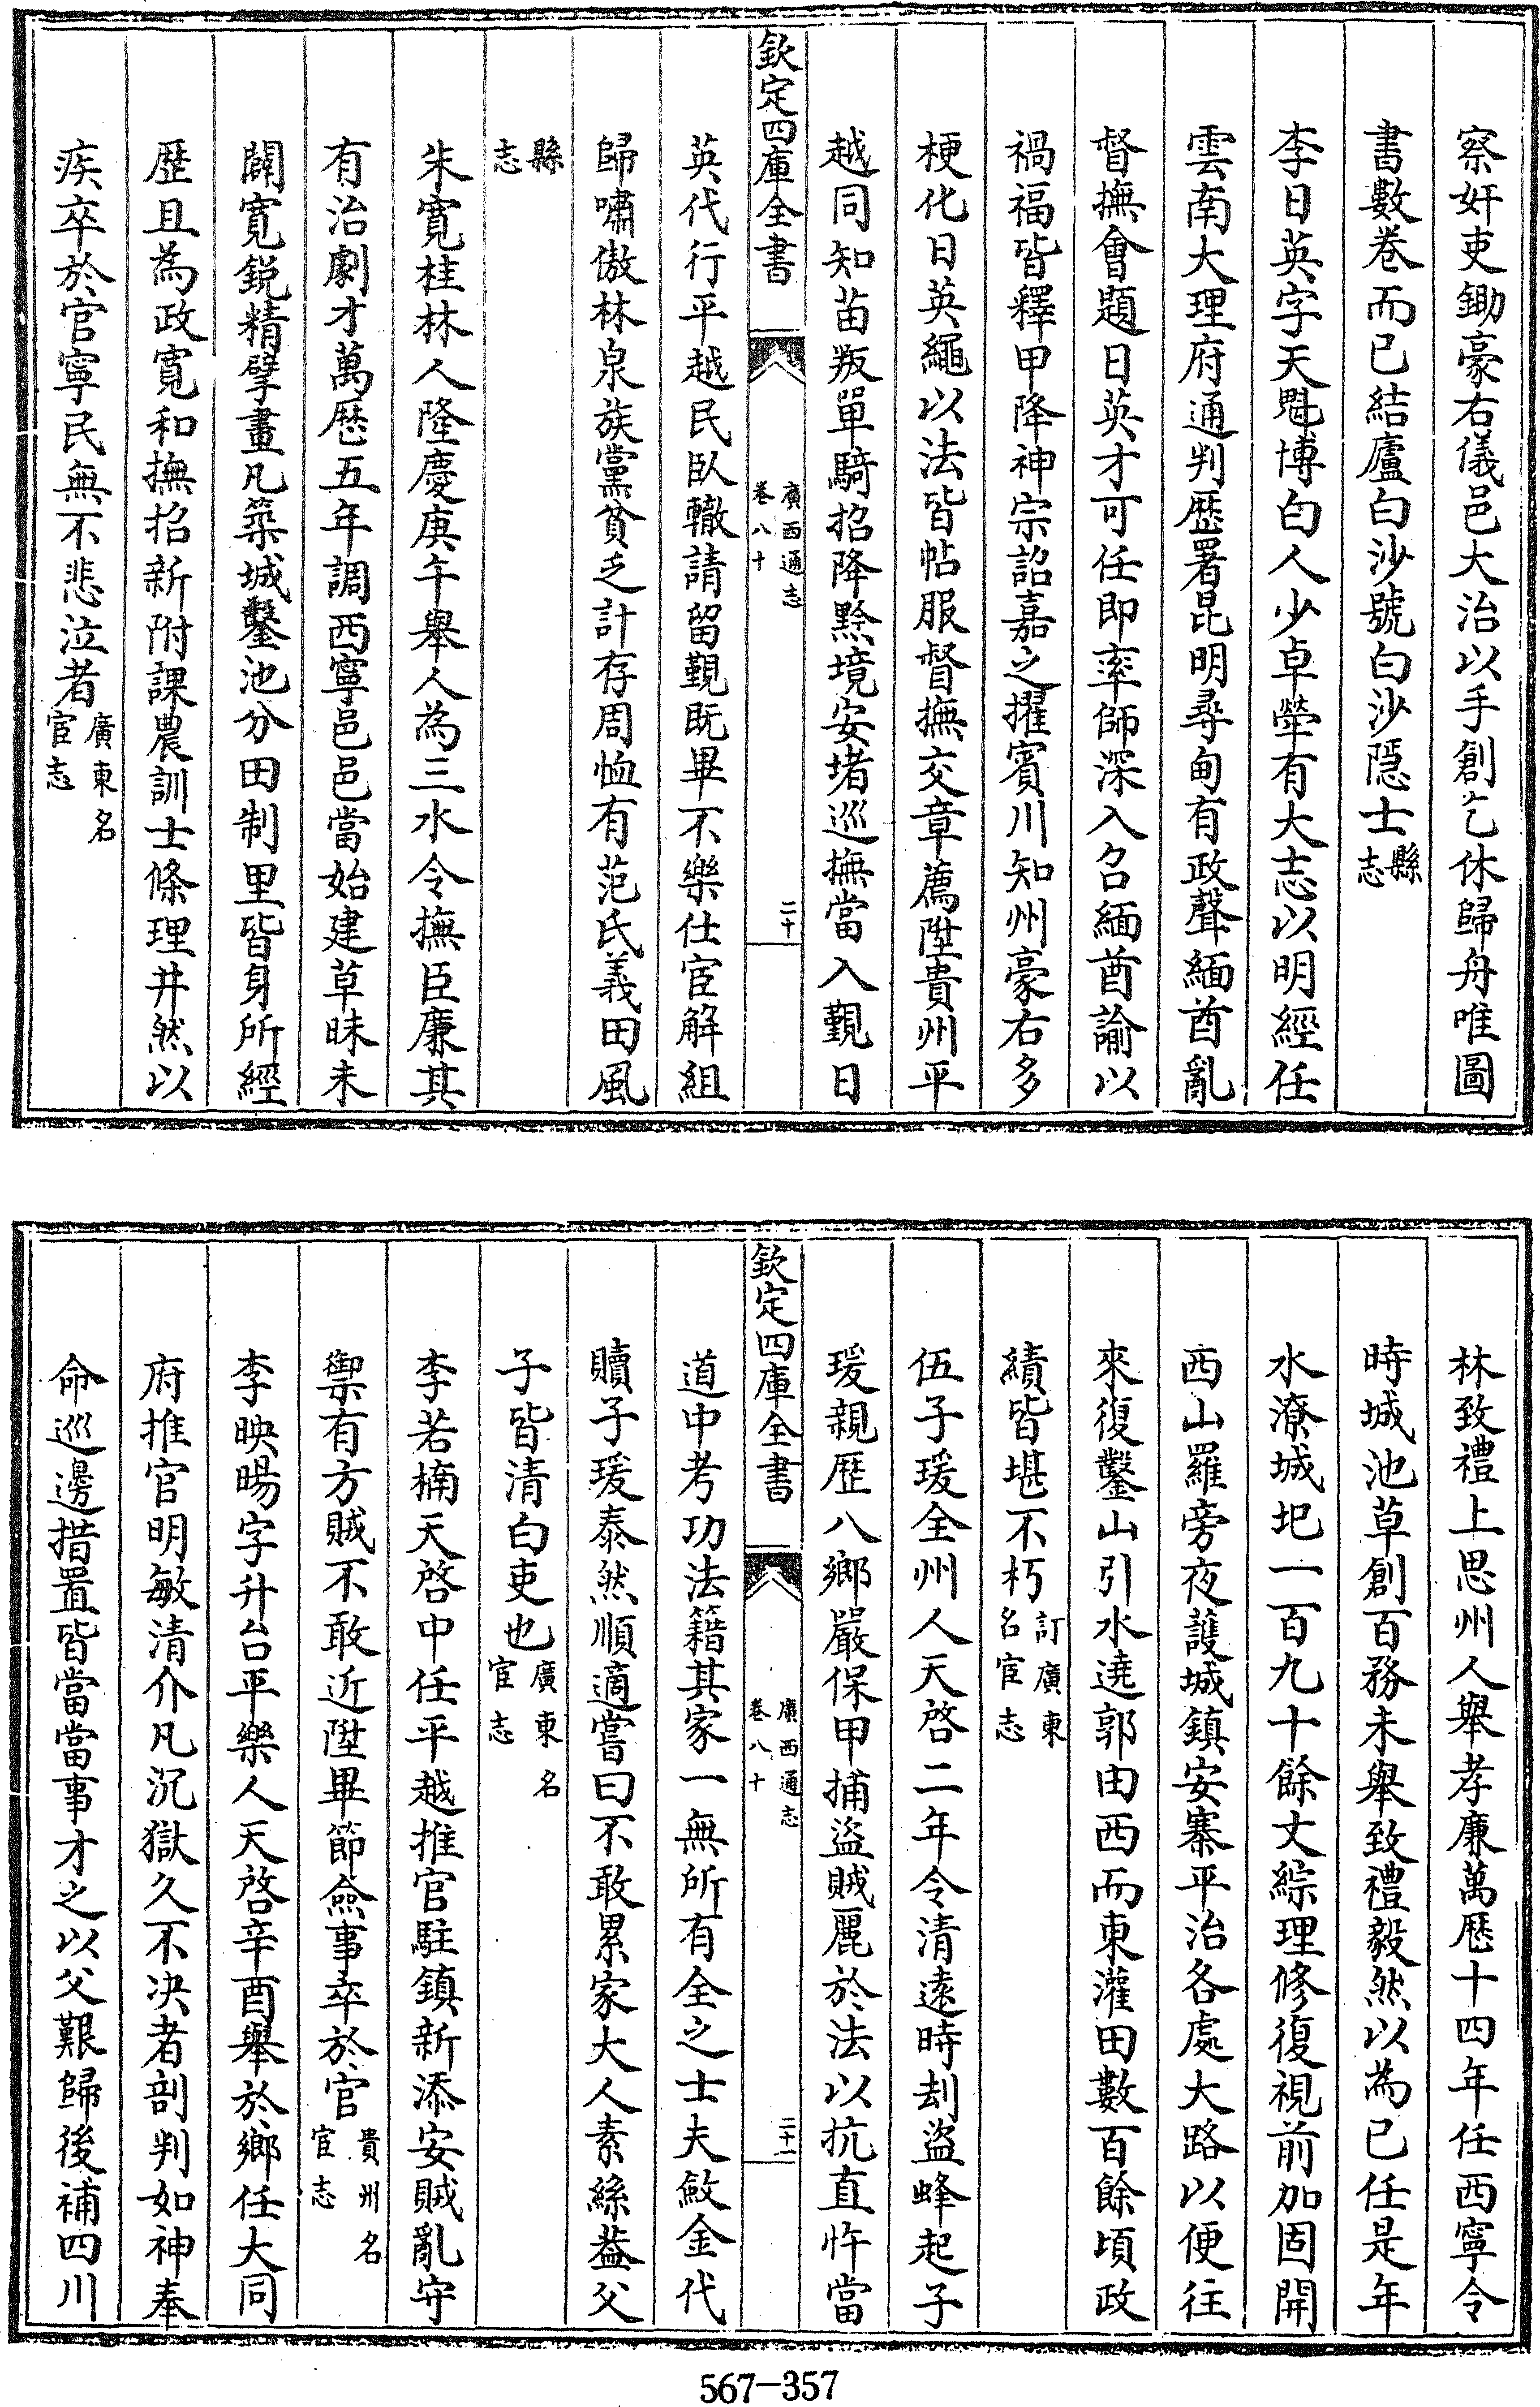 察奸吏鋤豪右儀邑大治以手創乞休歸舟唯圖
書數卷而已結廬白沙號白沙隱士縣志
李日英字天毘博白人少卓犖有大志以明經任
雲南大理府通判歷署昆明尋甸有政聲緬酋亂
督撫會題日英才可任即率師深入召緬酋諭以
禍福皆釋甲降神宗詔嘉之擢賓川知州豪右多
梗化日英繩以法皆帖服督撫交章薦陞貴州平
越同知苗叛單騎招降黔境安堵巡撫當入覲日
欽定四庫全書 廣西通志 卷八十 二十
英代行平越民臥轍請留覲既畢不樂仕宦解組
歸嘯傲林泉族黨貧乏計存周恤有范氏義田風
縣志
朱寬桂林人隆慶庚午舉人為三水令撫臣廉其
有治劇才萬歷五年調西寧邑邑當始建草昧未
闢寬銳精擘畫凡築城鑿池分田制里皆身所經
歷且為政寬和撫招新附課農訓士條理井然以
疾卒於官寧民無不悲泣者廣東名宦志
林致禮上思州人舉孝廉萬歷十四年任西寧令
時城池草創百務未舉致禮毅然以為已任是年
水潦城圯一百九十餘丈綜理修復視前加固開
西山羅旁夜護城鎮安寨平治各處大路以便往
來復鑿山引水遶郭由西而東灌田數百餘頃政
績皆堪不朽訂廣東名宦志
伍子瑗全州人天啓二年令清遠時刦盜蜂起子
瑗親歷八鄉嚴保甲捕盜賊麗於法以抗直忤當
欽定四庫全書 廣西通志 卷八十 二十一
道中考功法籍其家一無所有全之士夫斂金代
贖子瑗泰然順適嘗曰不敢累家大人素絲葢父
子皆清白吏也廣東名宦志
李若楠天啓中任平越推官駐鎮新添安賊亂守
禦有方賊不敢近陞畢節僉事卒於官貴州名宦志
李映暘字升台平樂人天啓辛酉舉於鄉任大同
府推官明敏清介凡沉獄久不決者剖判如神奉
命巡邊措置皆當當事才之以父艱歸後補四川
567-357